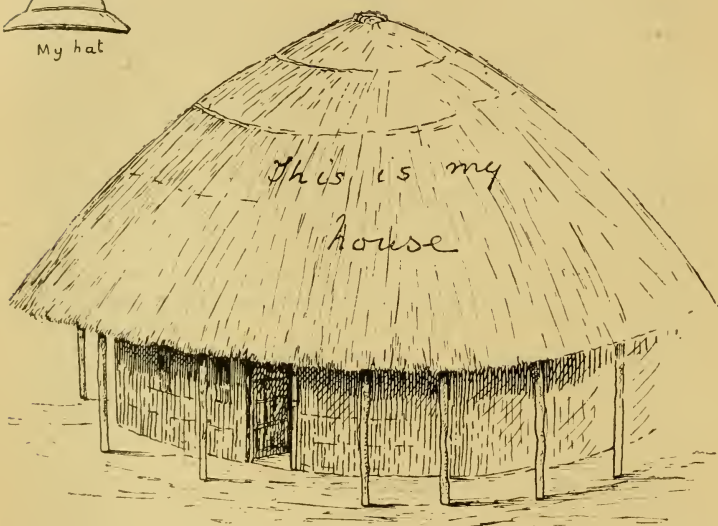 My hat
This is my
house